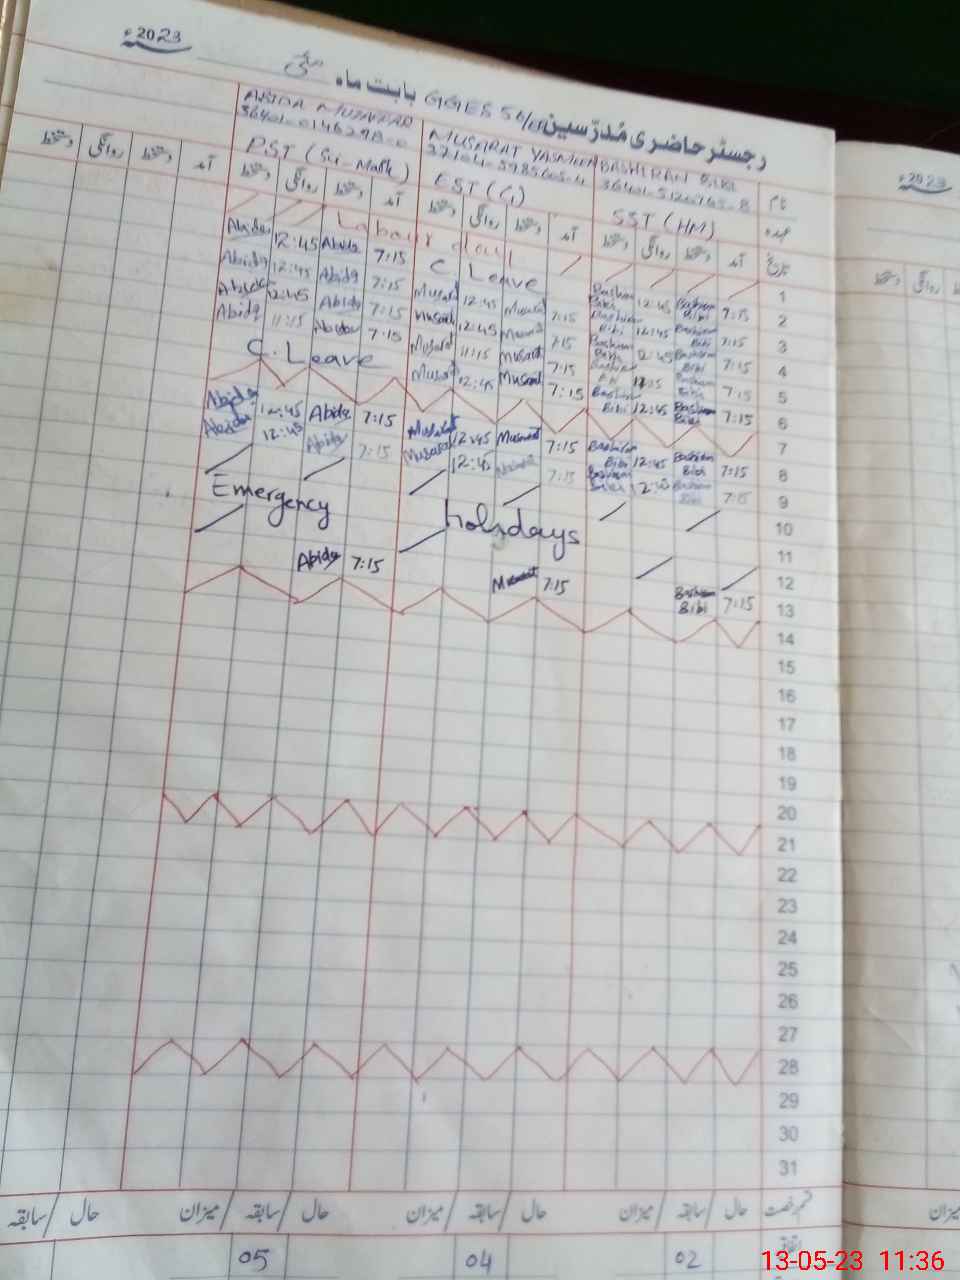 2023ء
رجسٹر حاضری مُدرّسین GGES 56/ بابت ماہ مئی
2023ء
نام BASHIRAN BIBI MUSARAT YASMEEN ABIDA
عہدہ SST (HM) EST ( PST (Sc-Math)
تاریخ آمد دستخط روانگی دستخط آمد دستخط روانگی دستخط آمد دستخط روانگی دستخط آمد دستخط روانگی دستخط
1 Labour day
2 7:15 Bashiran Bibi 12:45 Bashiran Bibi C Leave 7:15 Abida 12:45 Abida
3 7:15 Bashiran Bibi 12:45 Bashiran Bibi 7:15 Musarat 12:45 Musarat 7:15 Abida 12:45 Abida
4 7:15 Bashiran Bibi 12:45 Bashiran Bibi 7:15 Musarat 12:45 Musarat 7:15 Abida 12:45 Abida
5 7:15 Bashiran Bibi 11:15 Bashiran Bibi 7:15 Musarat 11:15 Musarat 7:15 Abida 11:15 Abida
6 7:15 Bashiran Bibi 12:45 Bashiran Bibi 7:15 Musarat 12:45 Musarat C. Leave
7
8 7:15 Bashiran Bibi 12:45 Bashiran Bibi 7:15 Musarat 12:45 Musarat 7:15 Abida 12:45 Abida
9 7:15 Bashiran Bibi 12:45 Bashiran Bibi 7:15 Musarat 12:45 Musarat 7:15 Abida 12:45 Abida
10
11 Emergency holydays
12
13 7:15 Bashiran Bibi 7:15 Musarat 7:15 Abida
14
15
16
17
18
19
20
21
22
23
24
25
26
27
28
29
30
31
قسم رخصت حال سابقہ میزان حال سابقہ میزان حال سابقہ میزان حال سابقہ
میزان
02 04 05
13-05-23 11:36